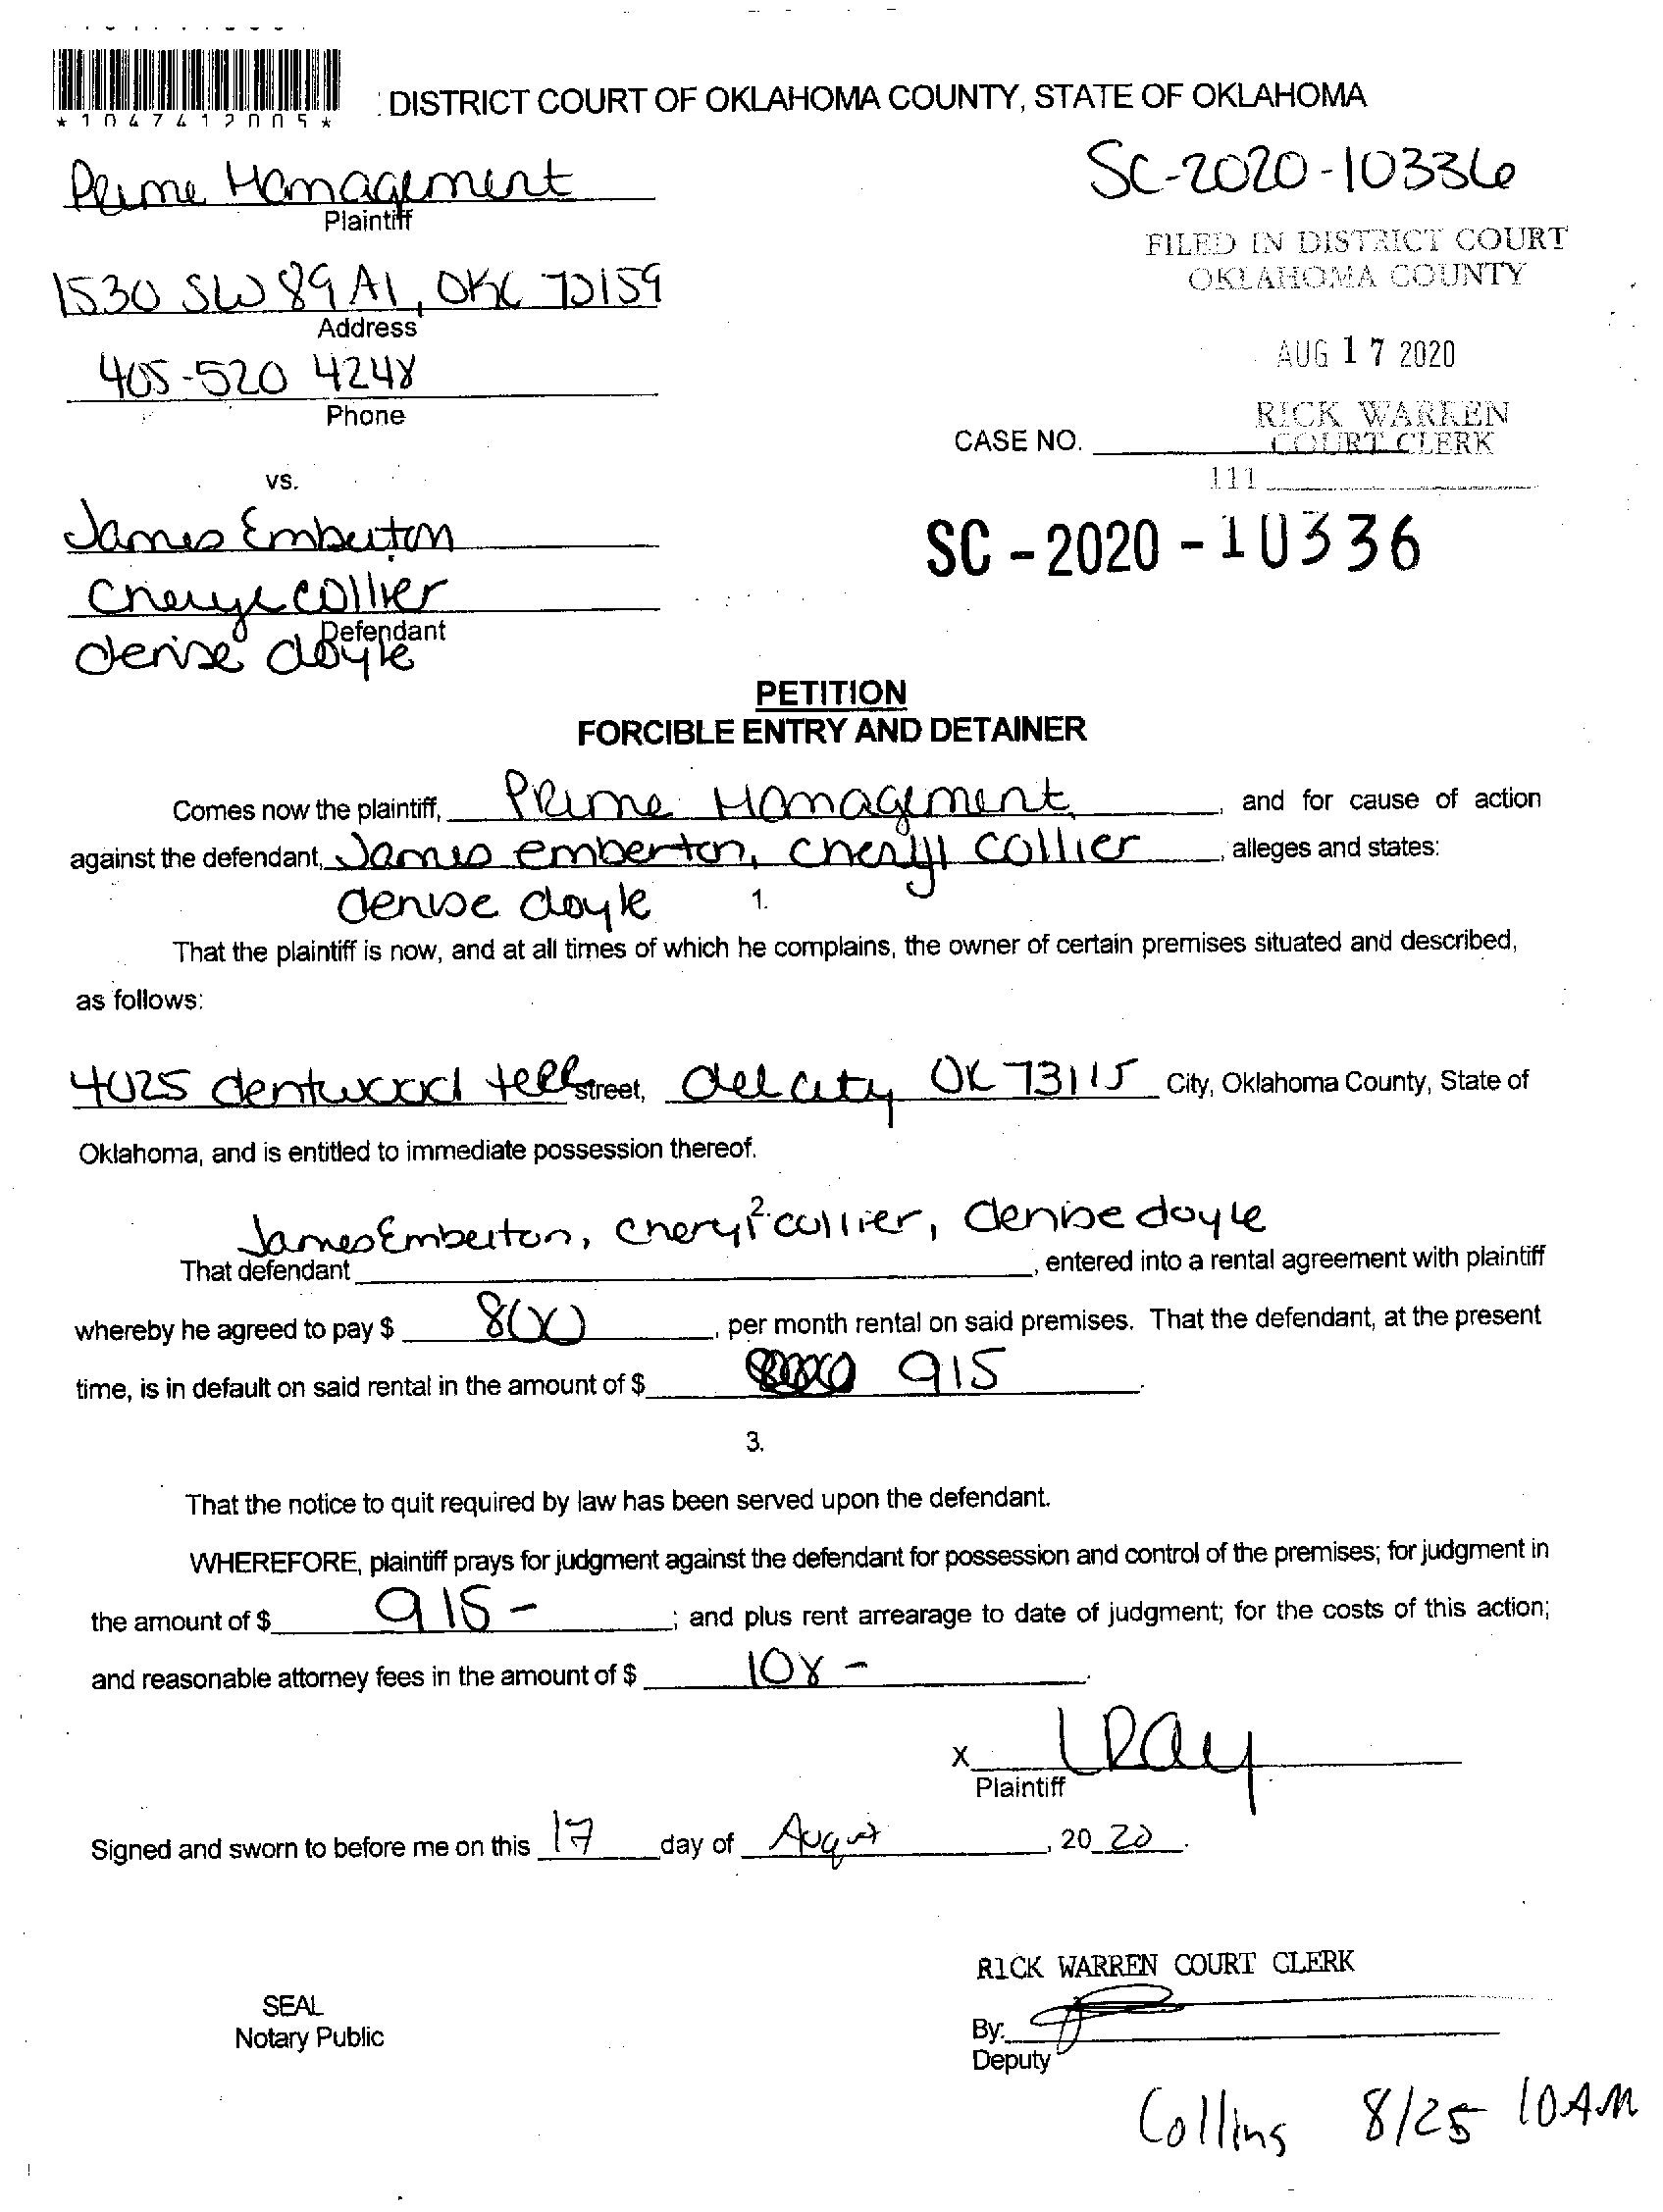 *1047412005*
DISTRICT COURT OF OKLAHOMA COUNTY, STATE OF OKLAHOMA
Prime Management
Plaintiff
SC-2020-10336
FILED IN DISTRICT COURT
OKLAHOMA COUNTY
1530 SW 89 A1, OKC 73159
Address
AUG 17 2020
405-520 4248
Phone
RICK WARREN
COURT CLERK
CASE NO.
111
vs.
James Emberton
SC-2020-10336
Cheryl Collier
Defendant
denise doyle
PETITION
FORCIBLE ENTRY AND DETAINER
Comes now the plaintiff, Prime Management, and for cause of action
against the defendant, James emberton, cheryl collier, alleges and states:
denise doyle
1.
That the plaintiff is now, and at all times of which he complains, the owner of certain premises situated and described,
as follows:
4025 dentwood terr street, del city OK 73115 City, Oklahoma County, State of
Oklahoma, and is entitled to immediate possession thereof.
2.
James Emberton, cheryl collier, denise doyle
That defendant, entered into a rental agreement with plaintiff
whereby he agreed to pay $ 800, per month rental on said premises. That the defendant, at the present
time, is in default on said rental in the amount of $ 915.
3.
That the notice to quit required by law has been served upon the defendant.
WHEREFORE, plaintiff prays for judgment against the defendant for possession and control of the premises; for judgment in
the amount of $ 915-; and plus rent arrearage to date of judgment; for the costs of this action;
and reasonable attorney fees in the amount of $ 108-.
x LRay
Plaintiff
Signed and sworn to before me on this 17 day of August, 20 20.
RICK WARREN COURT CLERK
SEAL
Notary Public
By:
Deputy
Collins 8/25 10AM